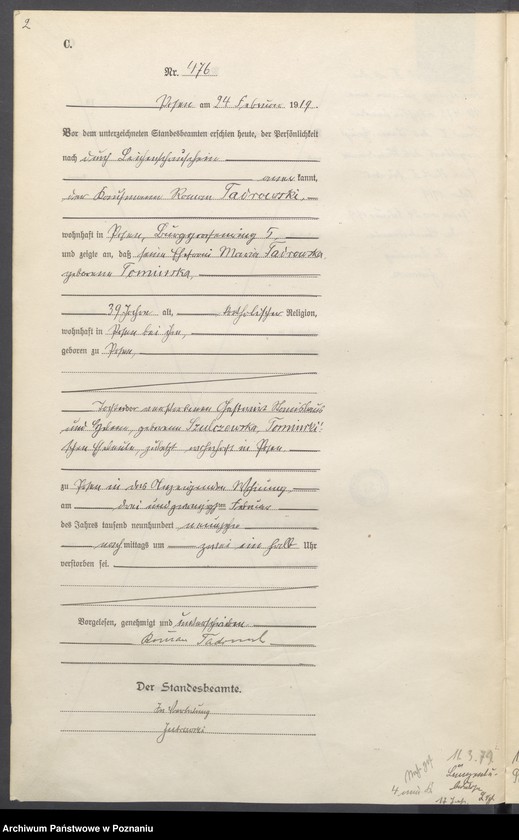 2
C.
Nr. 476
Posen am 24 Februar 1919.
Vor dem unterzeichneten Standesbeamten erschien heute, der Persönlichkeit
nach durch Leichenschauschein
anerkannt,
der Kaufmann Roman Tadrowski,
wohnhaft in Posen, 5,
und zeigte an, daß seine Ehefrau Maria Tadrowska,
geborene Tominska,
39 Jahre alt, katholischer Religion,
wohnhaft in Posen bei ihm,
geboren zu Posen,
Tochter der verstorbenen Gastwirt Stanislaus
und Helene, geborenen Szulczewska, Tominski'
schen Eheleute, zuletzt wohnhaft in Posen
zu Posen in des Anzeigenden Wohnung,
am drei und zwanzigsten Februar
des Jahres tausend neunhundert neunzehn
nachmittags um zwei ein halb Uhr
verstorben sei.
Vorgelesen, genehmigt und unterschrieben
Roman
Der Standesbeamte.
In Vertretung
Archiwum Państwowe w Poznaniu